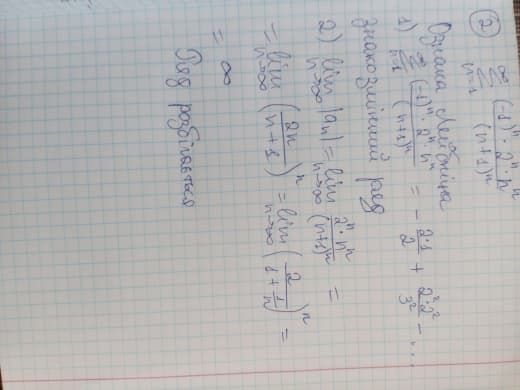 ② ∞∑n=1 (-1)ⁿ · 2ⁿ · nⁿ / (n+1)ⁿ
Ознака Лейбніца
1) ∞∑n=1 (-1)ⁿ · 2ⁿ · nⁿ / (n+1)ⁿ = - 2·1 / 2 + 2² · 2² / 3² - ...
знакозмінний ряд
2) lim n→∞ |aₙ| = lim n→∞ 2ⁿ · nⁿ / (n+1)ⁿ =
= lim n→∞ (2n / n+1)ⁿ = lim n→∞ (2 / 1 + 1/n)ⁿ =
= ∞
Ряд розбігається